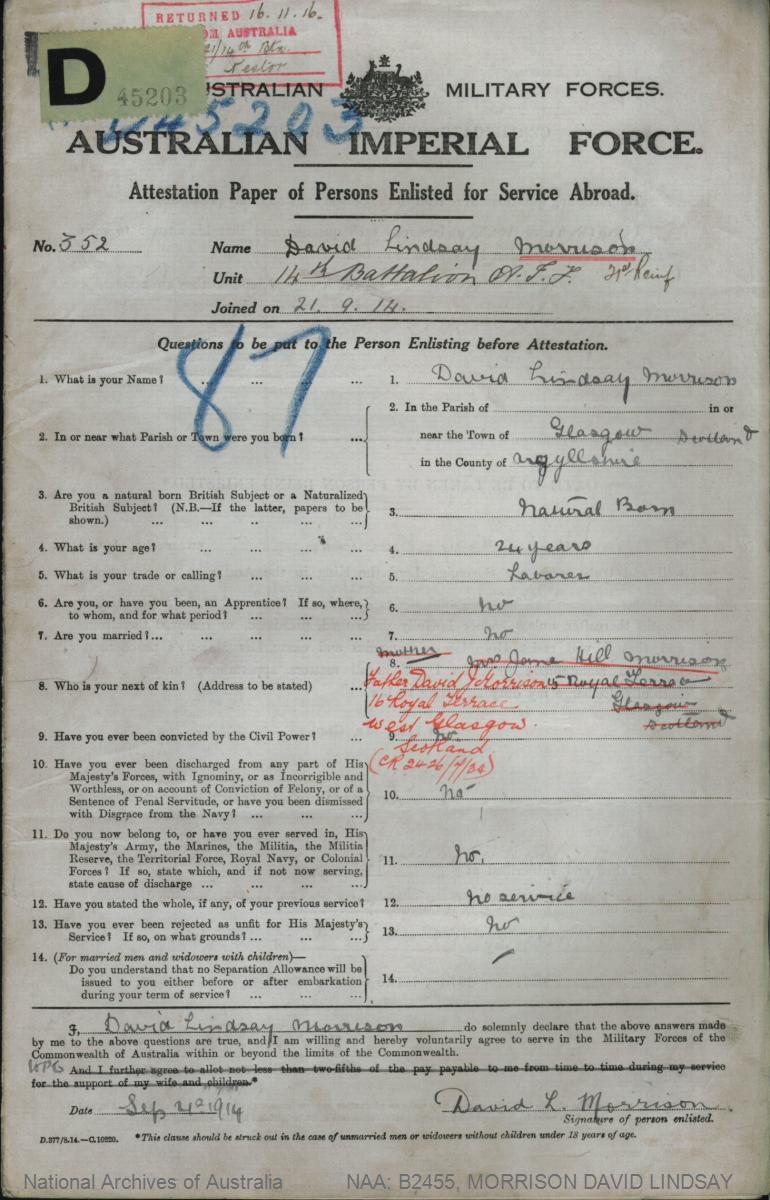 RETURNED 16.11.16.
FROM AUSTRALIA
21/14th Btn.
Nestor
D
45203
AUSTRALIAN MILITARY FORCES.
45203
AUSTRALIAN IMPERIAL FORCE.
Attestation Paper of Persons Enlisted for Service Abroad.
No. 352 Name David Lindsay Morrison
Unit 14th Battalion A.I.F. 21st Reinf
Joined on 21.9.14.
Questions to be put to the Person Enlisting before Attestation.
87
1. What is your Name? ... ... ... 1. David Lindsay Morrison
2. In or near what Parish or Town were you born? ... 2. In the Parish of in or
near the Town of Glasgow Scotland
in the County of Argyllshire
3. Are you a natural born British Subject or a Naturalized
British Subject? (N.B.—If the latter, papers to be
shown.) ... ... ... ... 3. Natural Born
4. What is your age? ... ... ... 4. 24 years
5. What is your trade or calling? ... ... 5. Laborer
6. Are you, or have you been, an Apprentice? If so, where,
to whom, and for what period? ... ... ... 6. no
7. Are you married?... ... ... ... 7. no
mother
8. Who is your next of kin? (Address to be stated) ... 8. Mrs Jane Hill Morrison
Father David J Morrison 15 Royal Terrace
16 Royal Terrace Glasgow
West Glasgow. Scotland
Scotland
(CR 2426/7/34)
9. Have you ever been convicted by the Civil Power? ... 9. no
10. Have you ever been discharged from any part of His
Majesty's Forces, with Ignominy, or as Incorrigible and
Worthless, or on account of Conviction of Felony, or of a
Sentence of Penal Servitude, or have you been dismissed
with Disgrace from the Navy? ... ... ... 10. no
11. Do you now belong to, or have you ever served in, His
Majesty's Army, the Marines, the Militia, the Militia
Reserve, the Territorial Force, Royal Navy, or Colonial
Forces? If so, state which, and if not now serving,
state cause of discharge ... ... ... ... 11. No.
12. Have you stated the whole, if any, of your previous service? 12. no service
13. Have you ever been rejected as unfit for His Majesty's
Service? If so, on what grounds? ... ... ... 13. No
14. (For married men and widowers with children)—
Do you understand that no Separation Allowance will be
issued to you either before or after embarkation
during your term of service? ... ... ... 14.
I, David Lindsay Morrison do solemnly declare that the above answers made
by me to the above questions are true, and I am willing and hereby voluntarily agree to serve in the Military Forces of the
Commonwealth of Australia within or beyond the limits of the Commonwealth.
And I further agree to allot not less than two-fifths of the pay payable to me from time to time during my service
for the support of my wife and children.*
Date Sep 21st 1914 David L. Morrison
Signature of person enlisted.
D.377/8.14.—C.10820. *This clause should be struck out in the case of unmarried men or widowers without children under 18 years of age.
National Archives of Australia NAA: B2455, MORRISON DAVID LINDSAY